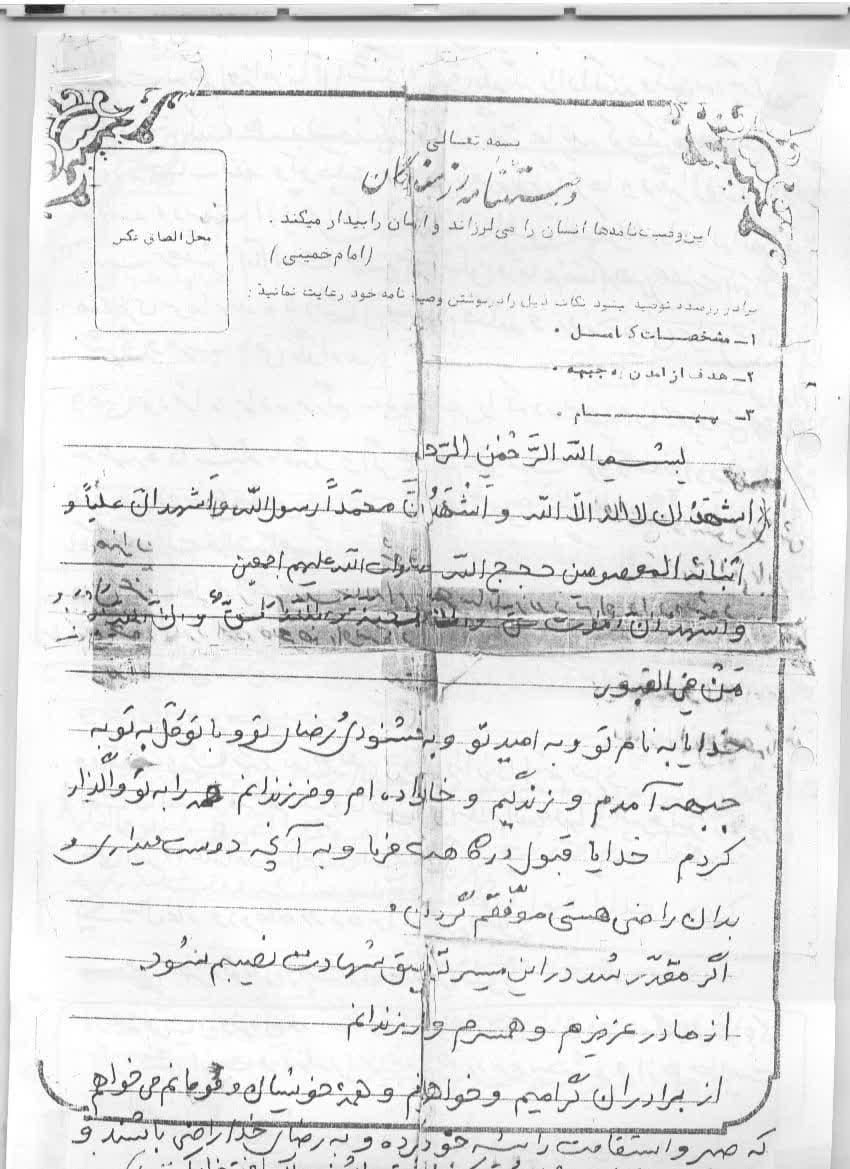 بسمه تعالی
وصیتنامه رزمندگان
این وصیت نامه‌ها انسان را می‌لرزاند و انسان را بیدار میکند .
(امام خمینی)
محل الصاق عکس
برادر رزمنده توصیه میشود نکات ذیل را در نوشتن وصیت نامه خود رعایت نمائید :
۱ـ مشخصات کامل .
۲ـ هدف از آمدن به جبهه .
۳ـ پیام .
بسم الله الرّحمن الرّحیم
اشهد ان لا اله الّا الله و اَشْهَدُ انَّ محمّداً رسول الله و اَشهد انّ علیاً و
ابنائه المعصومین حجج الله صلوات الله علیهم اجمعین
و اشهد انّ الموت حق
مَنْ فی القبور
خدایا به نام تو و به امید تو و به خشنودی و رضای تو و با توکّل به تو به
جبهه آمدم و زندگیم و خانواده ام و فرزندانم را به تو واگذار
کردم خدایا قبول درگاهت فرما و به آنچه دوست میداری و
بدان راضی هستی موفّقم گردان .
اگر مقدّر شد در این مسیر توفیق شهادت نصیبم شود.
از مادر عزیزم و همسرم و فرزندانم
از برادران گرامیم و خواهرانم و همهٔ خویشان و قومانم می‌خواهم
که صبر و استقامت را پیشه خود کرده و به رضای خدا راضی باشند و